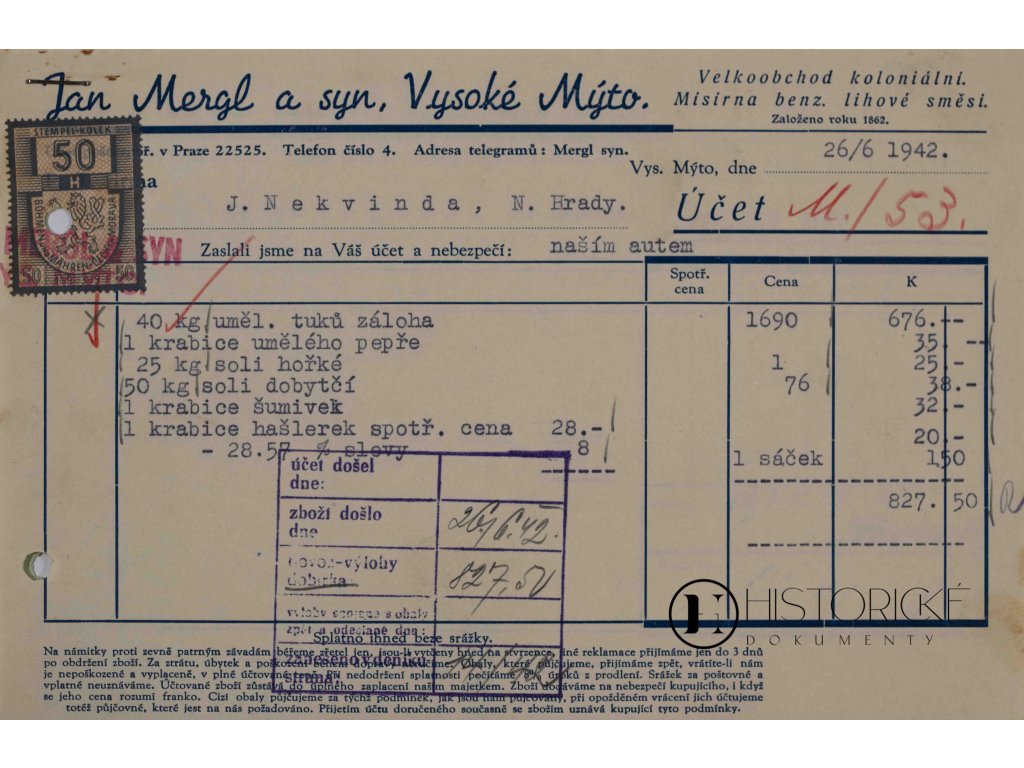 Jan Mergl a syn, Vysoké Mýto.
Velkoobchod koloniální.
Mísírna benz. lihové směsi.
Založeno roku 1862.
v Praze 22525. Telefon číslo 4. Adresa telegramů: Mergl syn.
Vys. Mýto, dne 26/6 1942.
STEMPEL-KOLEK
50
H
BÖHMEN und MÄHREN
50 50
J. Nekvinda, N. Hrady.
Účet M./53.
SYN
Zaslali jsme na Váš účet a nebezpečí: naším autem
Spotř. cena
Cena
K
40 kg uměl. tuků záloha 1690 676.--
1 krabice umělého pepře 35.--
25 kg soli hořké 1 25.-
50 kg soli dobytčí 76 38.-
1 krabice šumivek 32.-
1 krabice hašlerek spotř. cena 28.- 20.-
- 28.57 % slevy 8
1 sáček 1,50
827.50
účet došel
dne:
zboží došlo
dne 26/6.42.
dovoz-výlohy
dobírka 827,50
výlohy spojené s obaly
zpět a odeslané dne:
Splatno ihned beze srážky.
zaneseno v deníku
strana:
HISTORICKÉ
DOKUMENTY
Na námitky proti zevně patrným závadám běřeme zřetel jen, jsou-li vytčeny hned na stvrzence, jiné reklamace přijímáme jen do 3 dnů
po obdržení zboží. Za ztrátu, úbytek a poškození během dopravy neručíme. Obaly, které půjčujeme, přijímáme zpět, vrátíte-li nám
je nepoškozené a vyplaceně, v plné účtované ceně. Při nedodržení splatnosti počítáme 8% úroků z prodlení. Srážek za poštovné a
vyplatné neuznáváme. Účtované zboží zůstává do úplného zaplacení naším majetkem. Zboží dodáváme na nebezpečí kupujícího, i když
se jeho cena rozumí franko. Cizí obaly půjčujeme za týchž podmínek, jak jsou nám půjčovány, při opožděném vrácení jich účtujeme
totéž půjčovné, které jest na nás požadováno. Přijetím účtu doručeného současně se zbožím uznává kupující tyto podmínky.